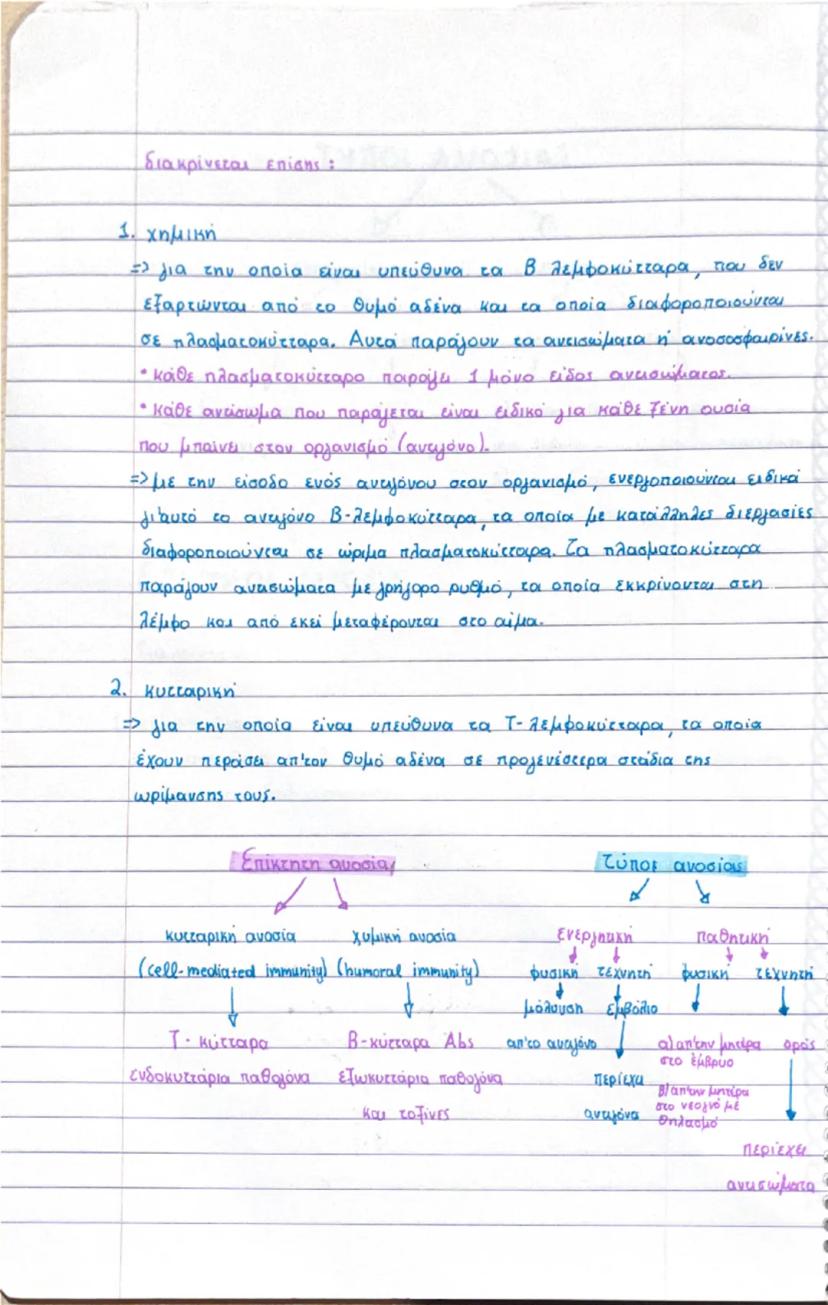 διακρίνεται επίσης:
1. χημική
=> για την οποία είναι υπεύθυνα τα Β λεμφοκύτταρα, που δεν
εξαρτώνται από το θυμό αδένα και τα οποία διαφοροποιούνται
σε πλασματοκύτταρα. Αυτά παράγουν τα αντισώματα ή ανοσοσφαιρίνες.
* κάθε πλασματοκύτταρο παράγει 1 μόνο είδος αντισώματος.
* κάθε αντίσωμα που παράγεται είναι ειδικό για κάθε ξένη ουσία
που μπαίνει στον οργανισμό (αντιγόνο).
=> με την είσοδο ενός αντιγόνου στον οργανισμό, ενεργοποιούνται ειδικά
γι'αυτό το αντιγόνο Β-λεμφοκύτταρα, τα οποία με κατάλληλες διεργασίες
διαφοροποιούνται σε ώριμα πλασματοκύτταρα. Τα πλασματοκύτταρα
παράγουν αντισώματα με γρήγορο ρυθμό, τα οποία εκκρίνονται στη
λέμφο και από εκεί μεταφέρονται στο αίμα.
2. κυτταρική
=> για την οποία είναι υπεύθυνα τα Τ-λεμφοκύτταρα, τα οποία
έχουν περάσει απ'τον θυμό αδένα σε προγενέστερα στάδια της
ωρίμανσης τους.
Επίκτητη ανοσία Τύποι ανοσίας
κυτταρική ανοσία χυμική ανοσία ενεργητική παθητική
(cell-mediated immunity) (humoral immunity) φυσική τεχνητή φυσική τεχνητή
μόλυνση εμβόλιο
Τ-κύτταρα Β-κύτταρα Abs απ'το αντιγόνο α) απ'την μητέρα ορός
στο έμβρυο
ενδοκυττάρια παθογόνα εξωκυττάρια παθογόνα περιέχει β) απ'την μητέρα
στο νεογνό με
και τοξίνες αντιγόνα θηλασμό
περιέχει
αντισώματα